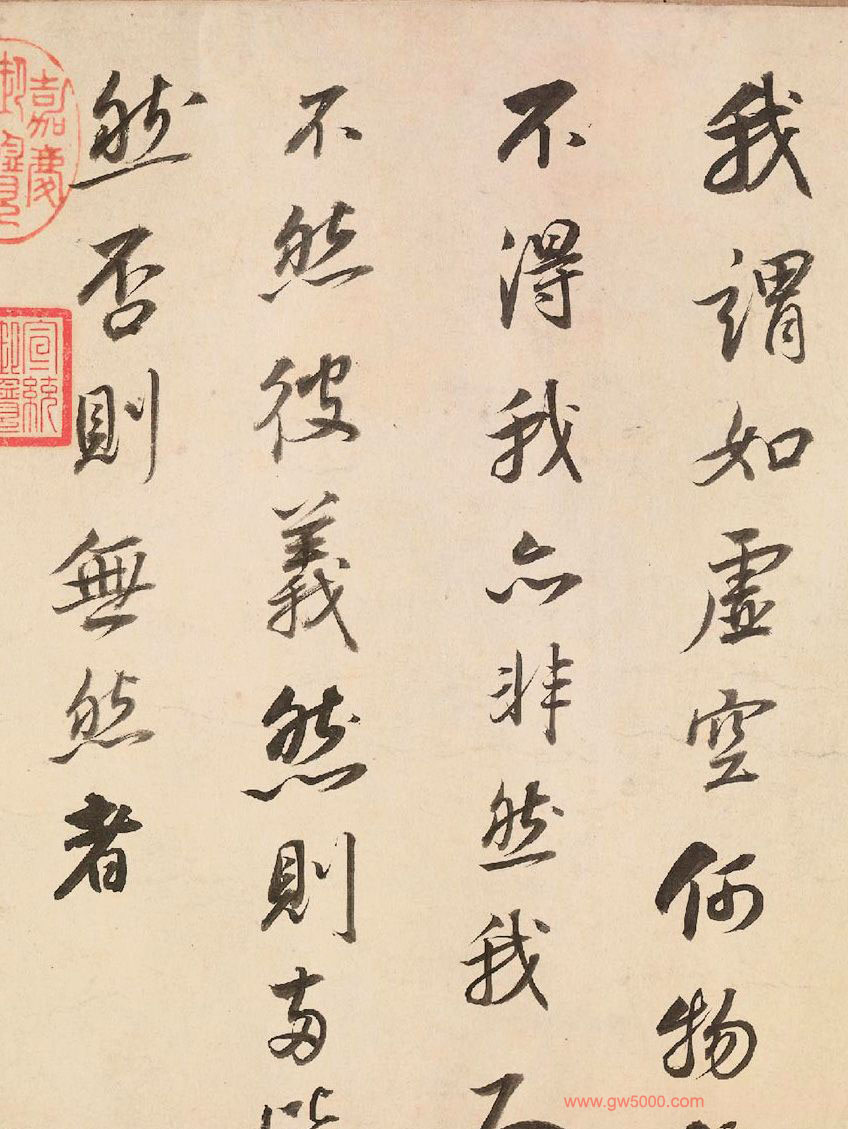 我謂如虛空何物
不得我亦非然我
不然彼義然則兩
然否則無然者
嘉慶御覽之寶
宣統御覽之寶
www.gw5000.com